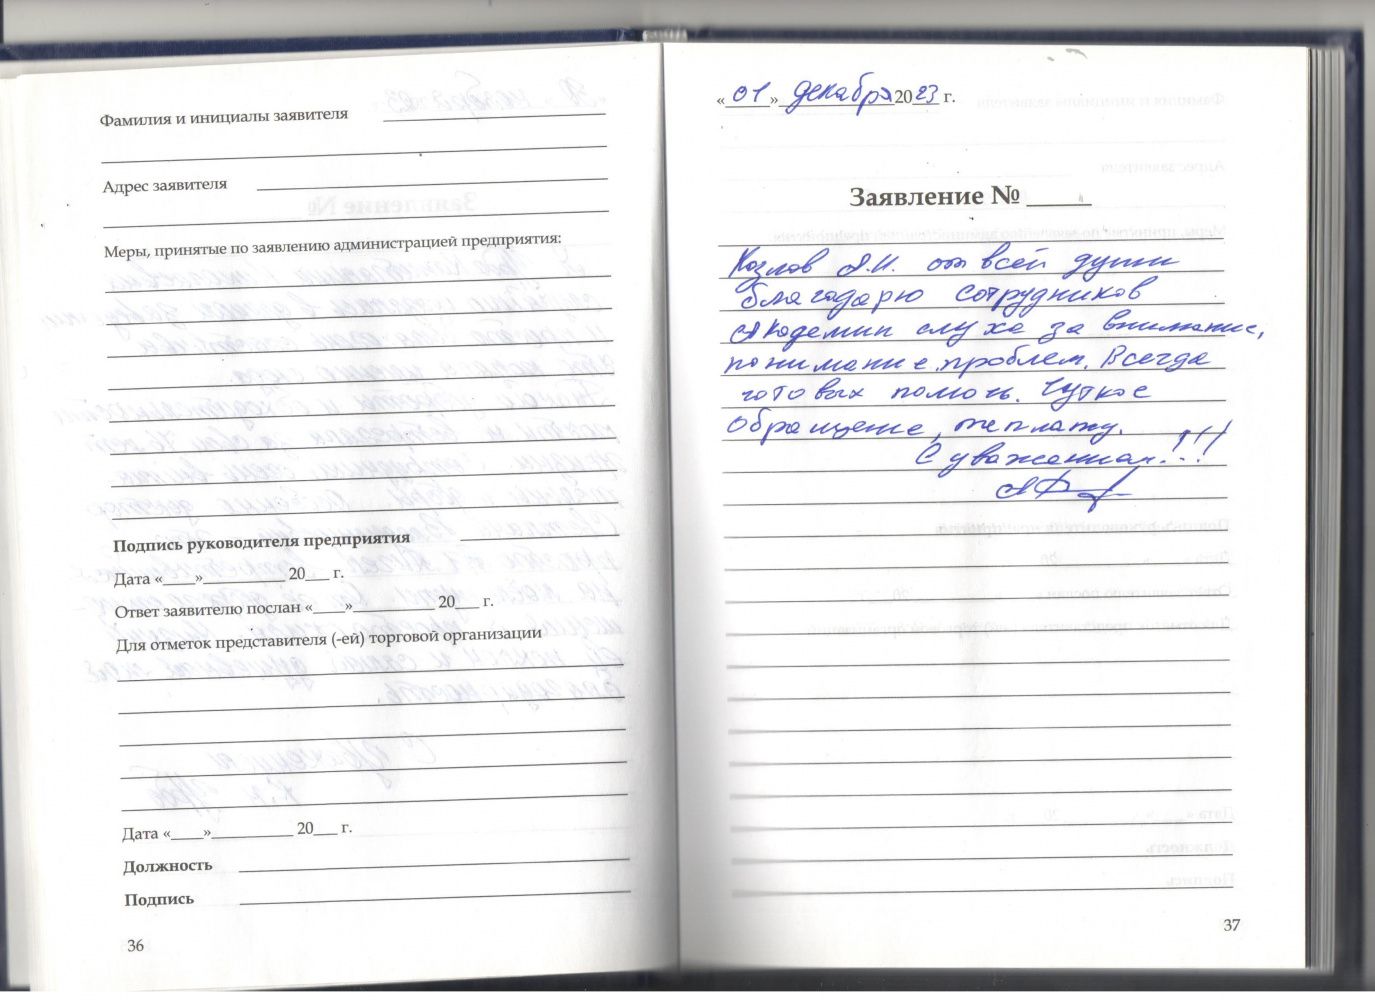 Фамилия и инициалы заявителя
Адрес заявителя
Меры, принятые по заявлению администрацией предприятия:
Подпись руководителя предприятия
Дата «____»__________ 20___ г.
Ответ заявителю послан «____»__________ 20___ г.
Для отметок представителя (-ей) торговой организации
Дата «____»__________ 20___ г.
Должность
Подпись
36
«01» декабря 2023 г.
Заявление № _____
Козлов А.И. от всей души
благодарю сотрудников
Академии слуха за внимание,
понимание проблем. Всегда
готовых помочь. Чуткое
обращение, теплоту.
С уважением!!!
37